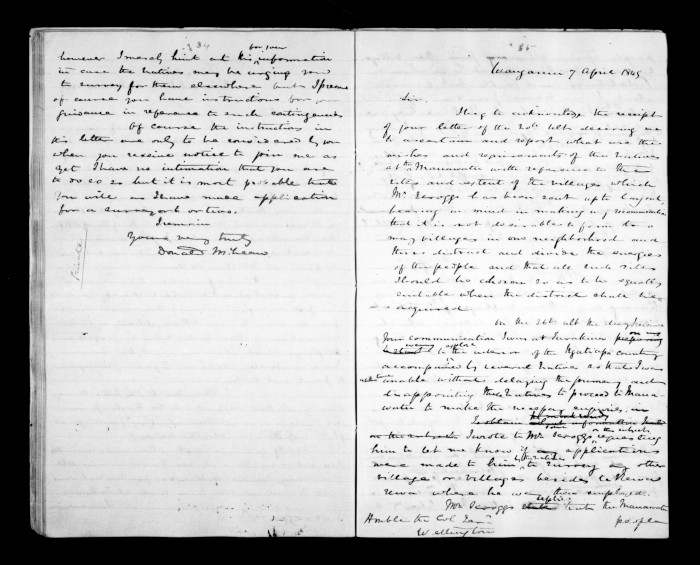 84
for your
however I merely hint at his information
in case the natives may be urging you
to survey for them elsewhere but I presume
of course you have instructions for your
guidance in reference to such contingencies
Of course the instructions in
this letter are only to be considered by you
when you receive notice to join me as
yet I have no intimation that you are
to do so so but it is most probable that
you will as I have made application
for a surveyor or two.
I remain
Yours very truly
Donald McLean
85
Wanganui 7 April 1849
Sir,
I beg to acknowledge the receipt
of your letter of the 20th Ult desiring me
to ascertain and report what are the
wishes and requirements of the Natives
at the Manawatu with reference to the
sites and extent of the villages which
Mr. Scroggs has been sent up to layout,
bearing in mind in making my recommendation
that it is not desirable to form too
many villages in one neighborhood and
thus distract and divide the energies
of the people and that all such sites
should be chosen so as to be equally
suitable when the district shall be
acquired.
On the 26th ult the day I received
your communication I was at Turakina
to the interior of the Ngatiapa country
accompanied by several Natives so that I was
unable without delaying the journey and
disappointing the Natives to proceed to Mana-
watu to make the necessary enquiries
I wrote to Mr Scroggs requesting
him to let me know if applications
were made to him to survey any other
village or villages besides
where he was then employed.
Mr Scroggs that the Manawatu
people
Honble the Col Secy
Wellington